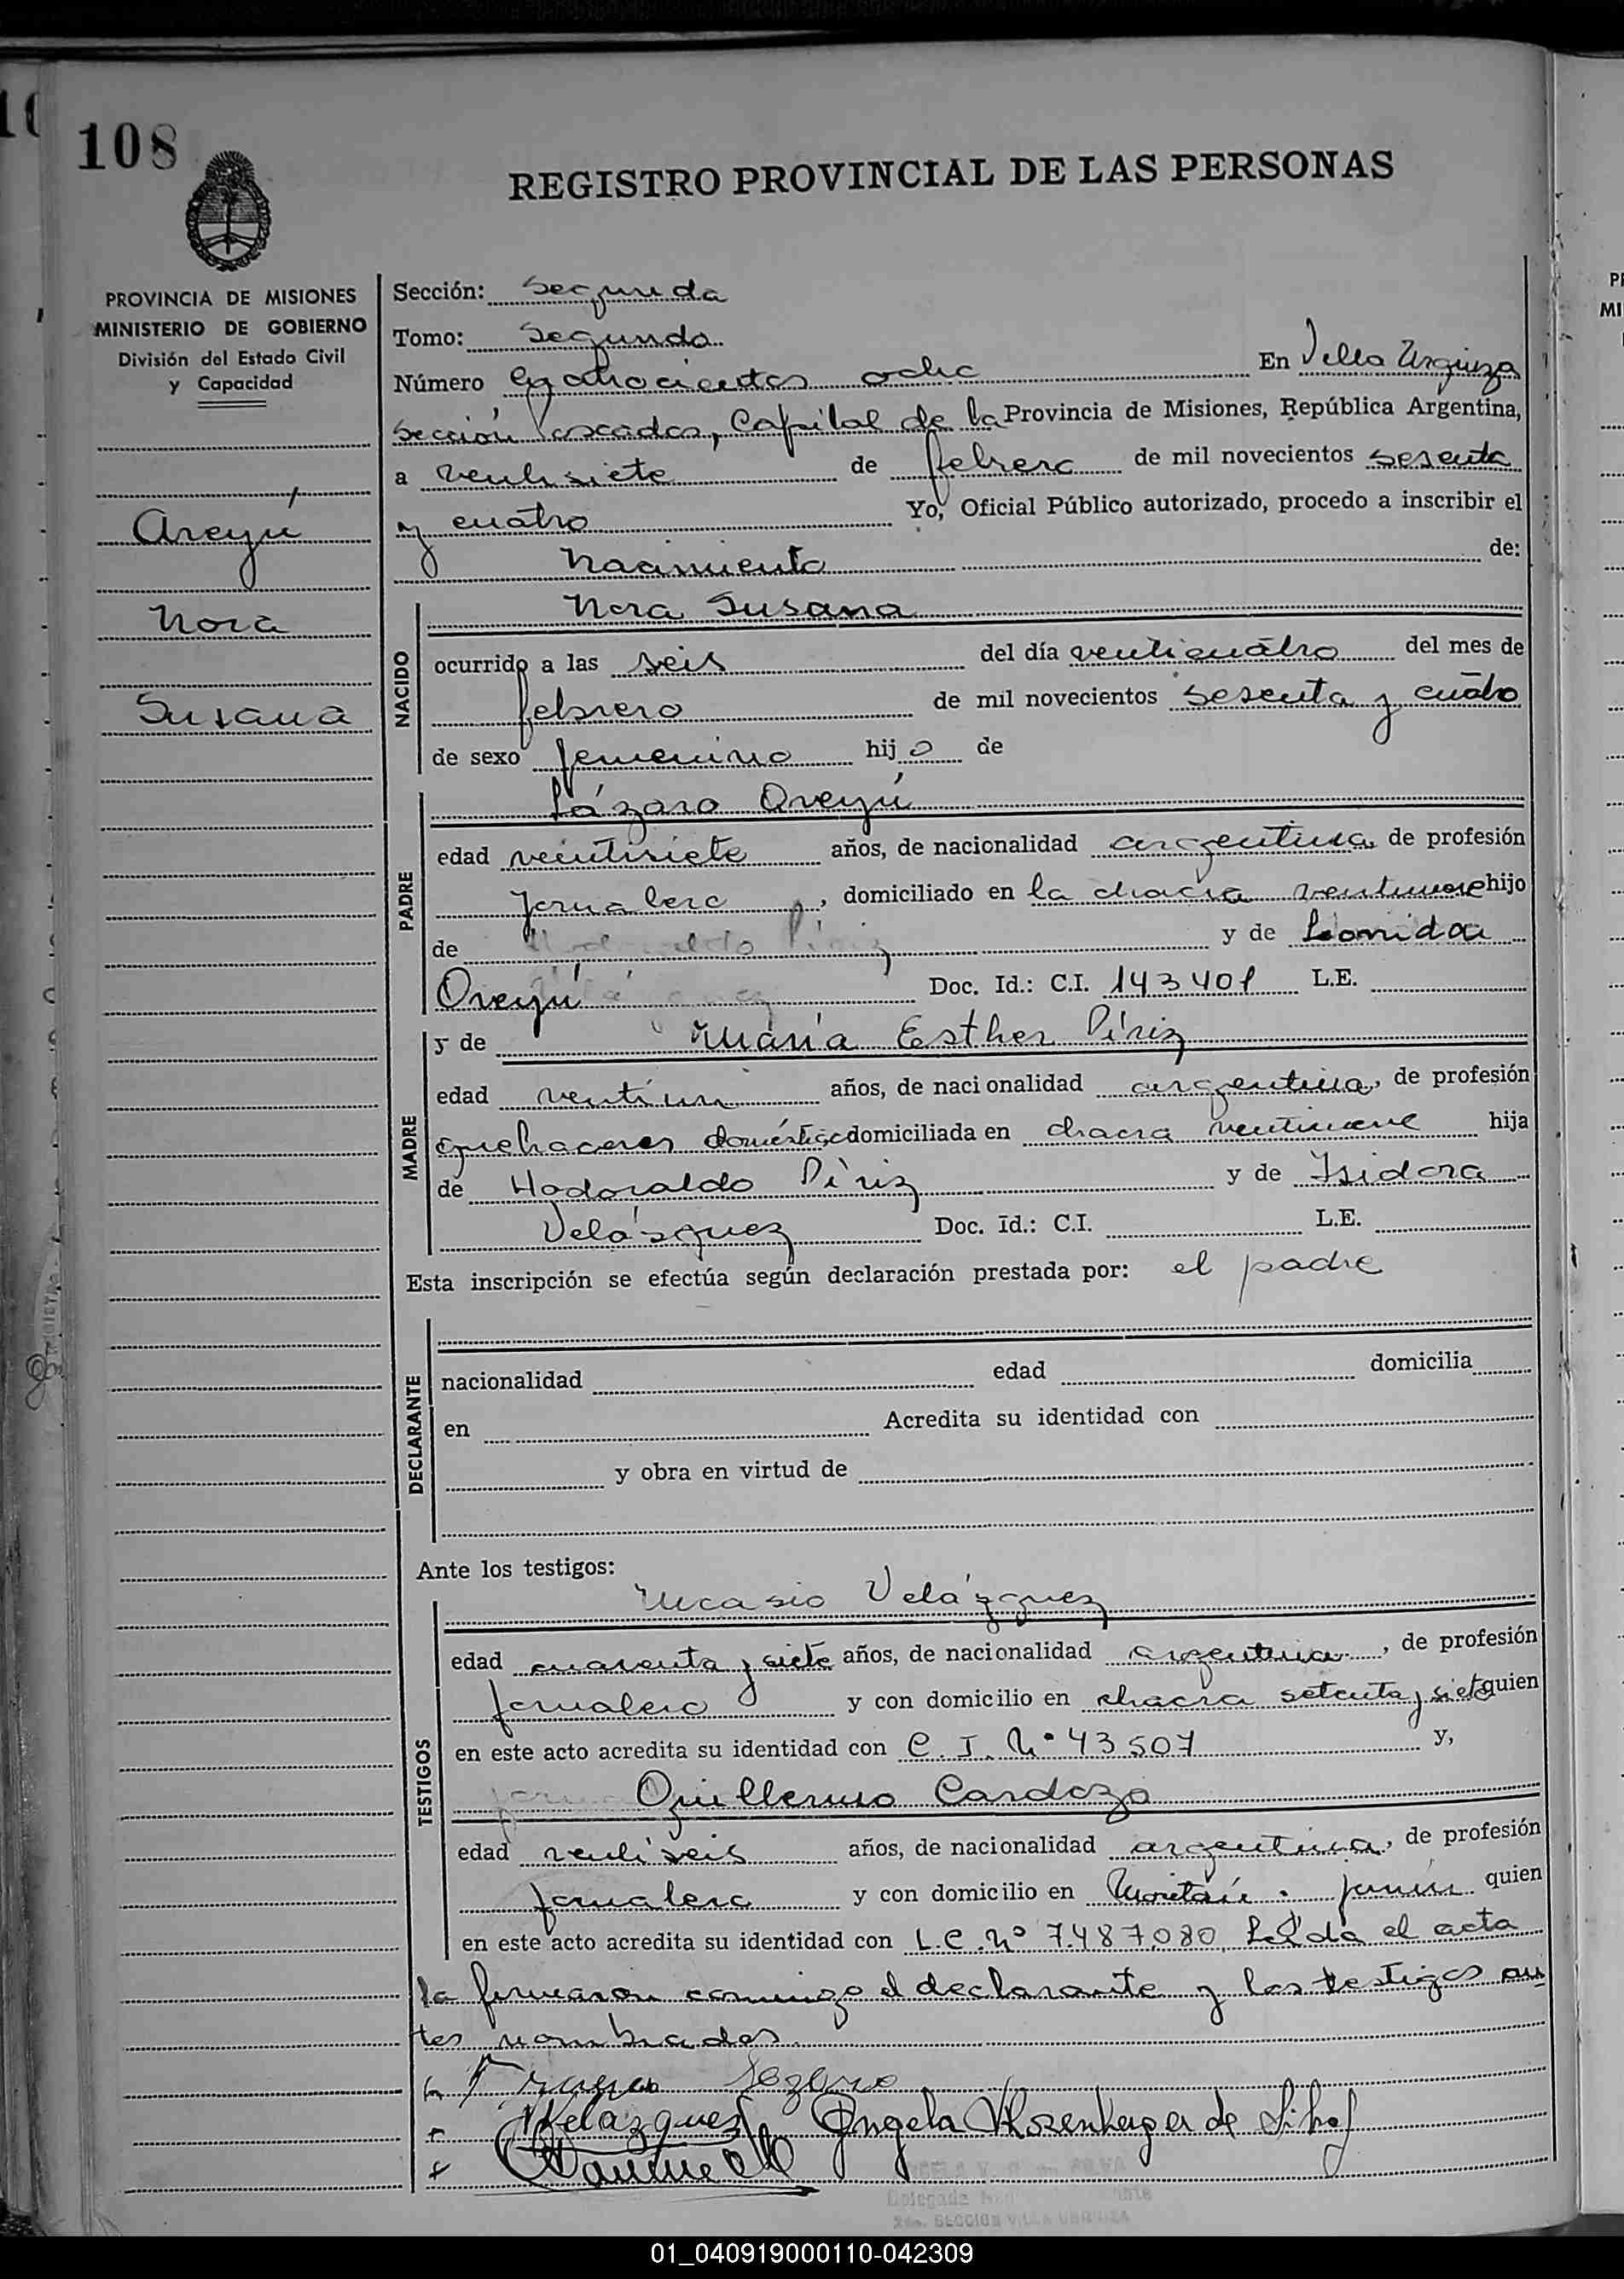 108
REGISTRO PROVINCIAL DE LAS PERSONAS
PROVINCIA DE MISIONES
MINISTERIO DE GOBIERNO
División del Estado Civil
y Capacidad
Areyú
Nora
Susana
Sección: Segunda
Tomo: Segundo
Número Cuatrocientos ocho En Villa Urquiza
Sección Posadas, Capital de la Provincia de Misiones, República Argentina,
a ventisiete de febrero de mil novecientos sesenta
y cuatro Yo, Oficial Público autorizado, procedo a inscribir el
Nacimiento de:
NACIDO
Nora Susana
ocurrido a las seis del día venticuatro del mes de
febrero de mil novecientos sesenta y cuatro
de sexo femenino hija de
PADRE
Lázaro Areyú
edad veintisiete años, de nacionalidad argentina, de profesión
jornalero, domiciliado en la chacra hijo
de y de Leonida
Areyú Doc. Id.: C.I. 143401 L.E.
MADRE
y de María Esther Píriz
edad ventiun años, de nacionalidad argentina, de profesión
quehaceres doméstico domiciliada en chacra ventinueve hija
de Hodoraldo Píriz y de Isidora
Velásquez Doc. Id.: C.I. L.E.
Esta inscripción se efectúa según declaración prestada por: el padre
DECLARANTE
nacionalidad edad domicilia
en Acredita su identidad con
y obra en virtud de
Ante los testigos:
TESTIGOS
Velázquez
edad cuarenta y siete años, de nacionalidad argentina, de profesión
jornalero y con domicilio en chacra setenta y siete quien
en este acto acredita su identidad con C. I. Nº 43507 y,
Guillermo Cardozo
edad ventiseis años, de nacionalidad argentina, de profesión
jornalero y con domicilio en quien
en este acto acredita su identidad con L.E. Nº 7.487.080. Leída el acta
la firmaron conmigo el declarante y los testigos an
tes nombrados.
Velazquez Angela
01_040919000110-042309